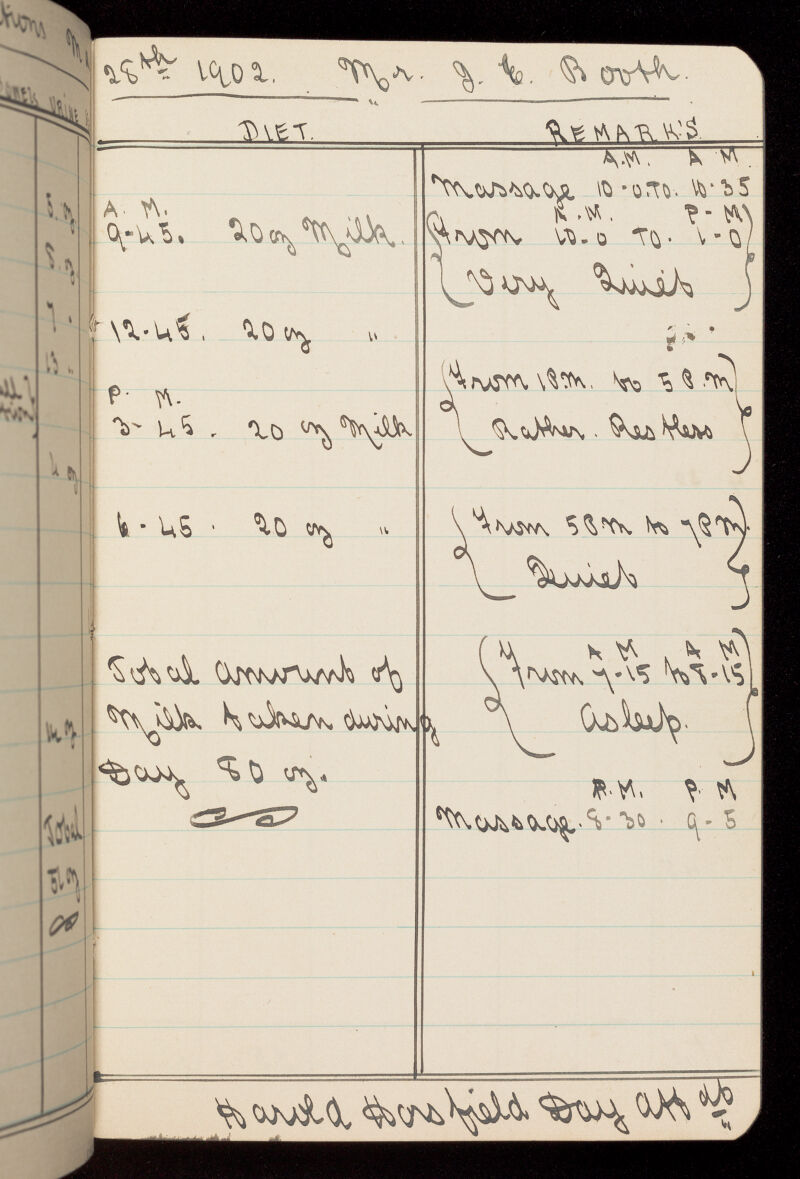 28th 1902. Mr. J. E. Booth.
DIET. REMARK'S
A.M. A M
Massage 10-0.TO. 10-35
A. M.
9-45. 20 oz Milk.
A.M. P-M
From 10-0 TO. 1-0
Very Quiet
12-45. 20 oz "
From 1P.M. to 5P.M
Rather. Restless
P. M.
3-45. 20 oz Milk
6-45. 20 oz "
From 5PM to 7PM.
Quiet
A M A M
From 7-15 to 8-15
asleep.
Total amount of
Milk taken during
Day 80 oz.
P.M. P M
Massage. 8-30. 9-5
Harold Horsfield Day Att dt
ctions
URINE
5. oz
8. oz
7 "
13 "
4 oz
14 oz
Total
51 oz